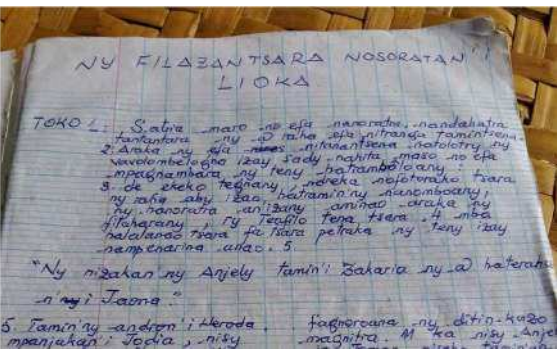 NY FILAZANTSARA NOSORATAN'I
LIOKA
TOKO 1: Satria maro no efa nanoratra, nandahatra
tantantara ny D raha efa nitranga tamintsena
2. Araka ny efa nitanantsena natolotry ny
vavolombelogna izay sady nahita maso no efa
mpagnambara ny teny hatrambeloany;
3. de ekeko tegnany, ndreka nofotorako tsara
ny raha aby izao, hatramin'ny nanomboany,
ny hanoratra an'izany aminao araka ny
filaharany, ry Teofilo tena tsara. 4 mba
hahalalanao tsara fa tsara petraka ny teny izay
nampenarina anao. 5.
"Ny nizakan ny Anjely tamin'i Zakaria ny D haterahan
n'ny i Jaona."
5. Tamin'ny andron'i Heroda,
mpanjakan'i Jodia, nisy
fagnoroana ny ditin-kazo
magnitra. 11 ka nisy Anje